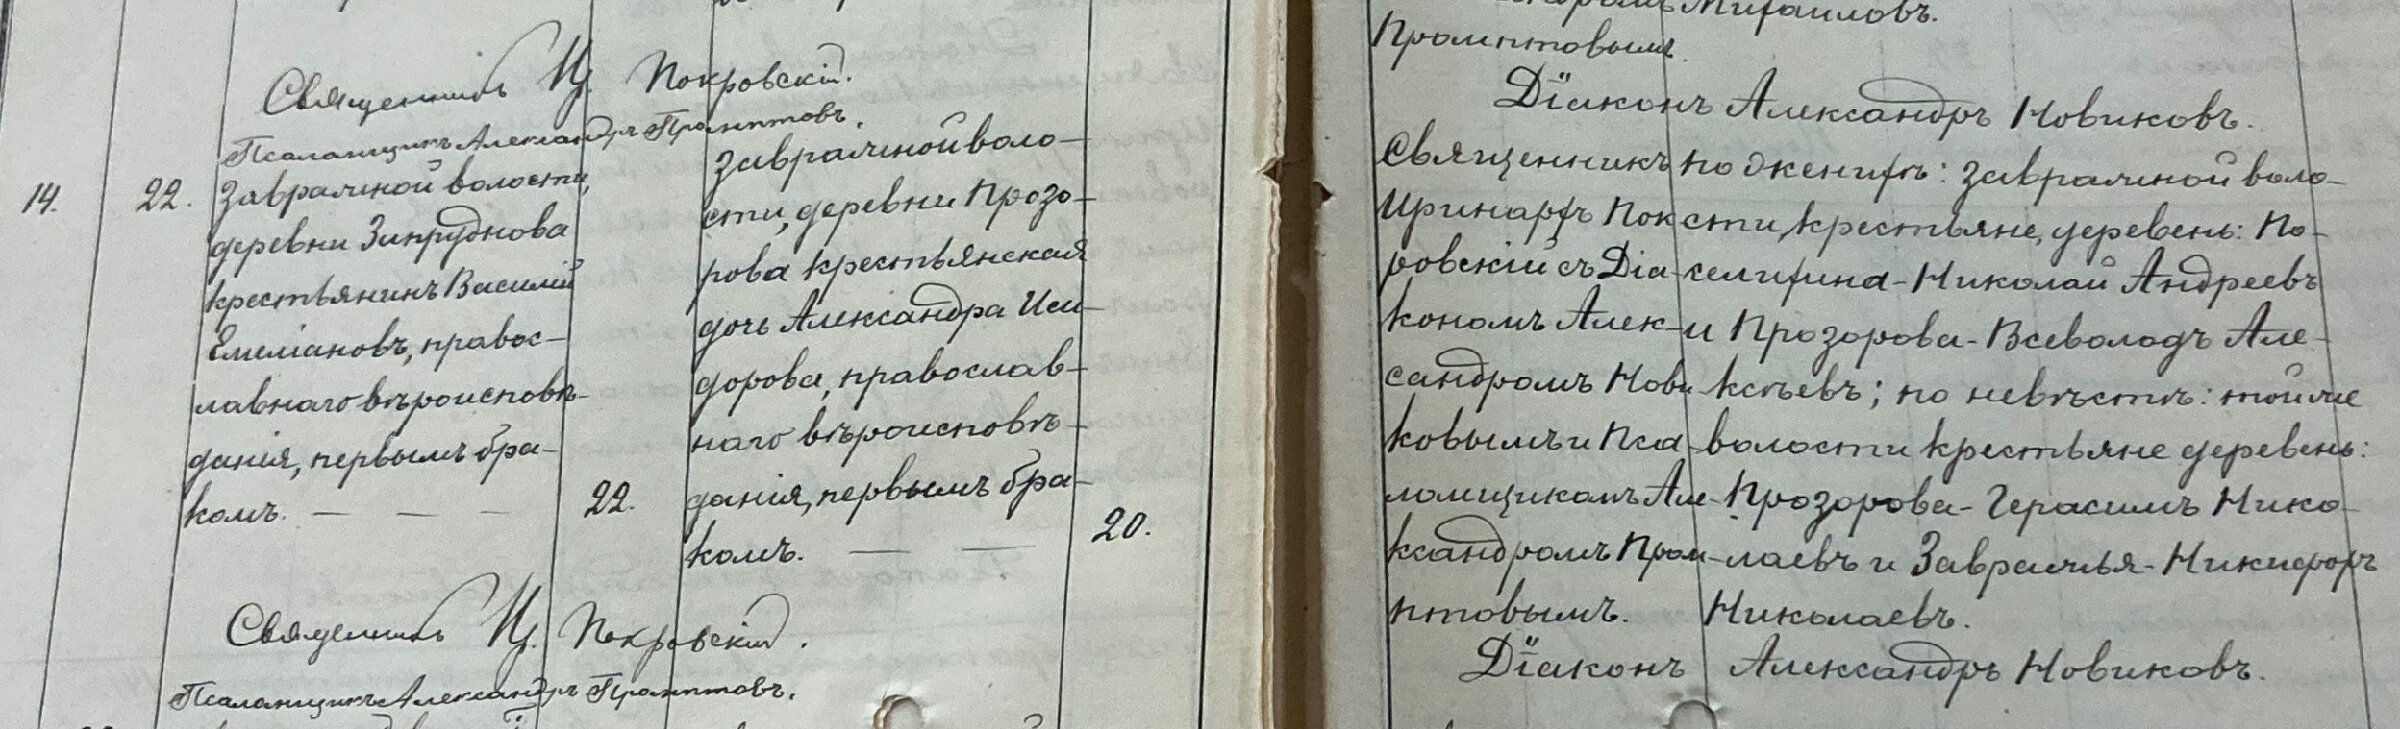 Священникъ Ир. Покровскій.
Псаломщикъ Александръ Промптовъ.
14.
22.
Завражной волости,
деревни Запруднова
крестьянинъ Василій
Емеліановъ, правос-
лавнаго вѣроисповѣ-
данія, первымъ бра-
комъ.
22.
Завражной воло-
сти, деревни Прозо-
рова крестьянская
дочь Александра Иси-
дорова, православ-
наго вѣроисповѣ-
данія, первымъ бра-
комъ.
20.
Священникъ Ир. Покровскій.
Псаломщикъ Александръ Промптовъ.
Михаиловъ.
Промптовымъ
Діаконъ Александръ Новиковъ.
Священникъ
Иринархъ Пок
ровскій съ Діа-
кономъ Алек-
сандромъ Нови
ковымъ и Пса
ломщикомъ Але-
ксандромъ Пром-
птовымъ.
по женихѣ: Завражной воло-
сти, крестьяне, деревень: По-
селихина - Николай Андреевъ
и Прозорова - Всеволодъ Але-
ксѣевъ; по невѣстѣ: той же
волости крестьяне деревень:
Прозорова - Герасимъ Нико-
лаевъ и Завражья - Никифоръ
Николаевъ.
Діаконъ Александръ Новиковъ.